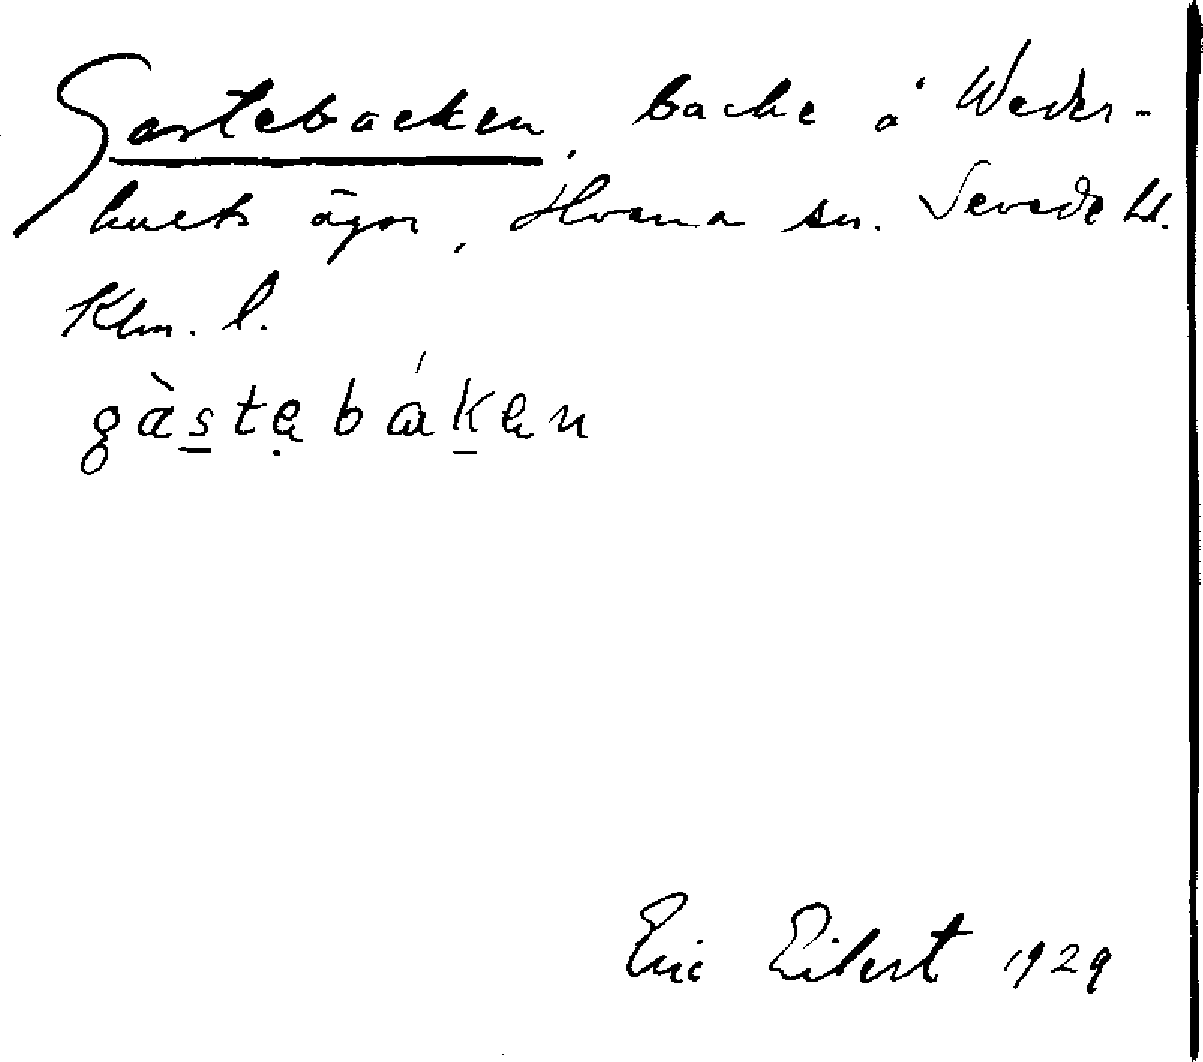 Gastebacken, backe å Weder-
hults ägor, Hvena sn. Sevede hd.
Klm. l.
gàstebákan
Eric Eilert 1929